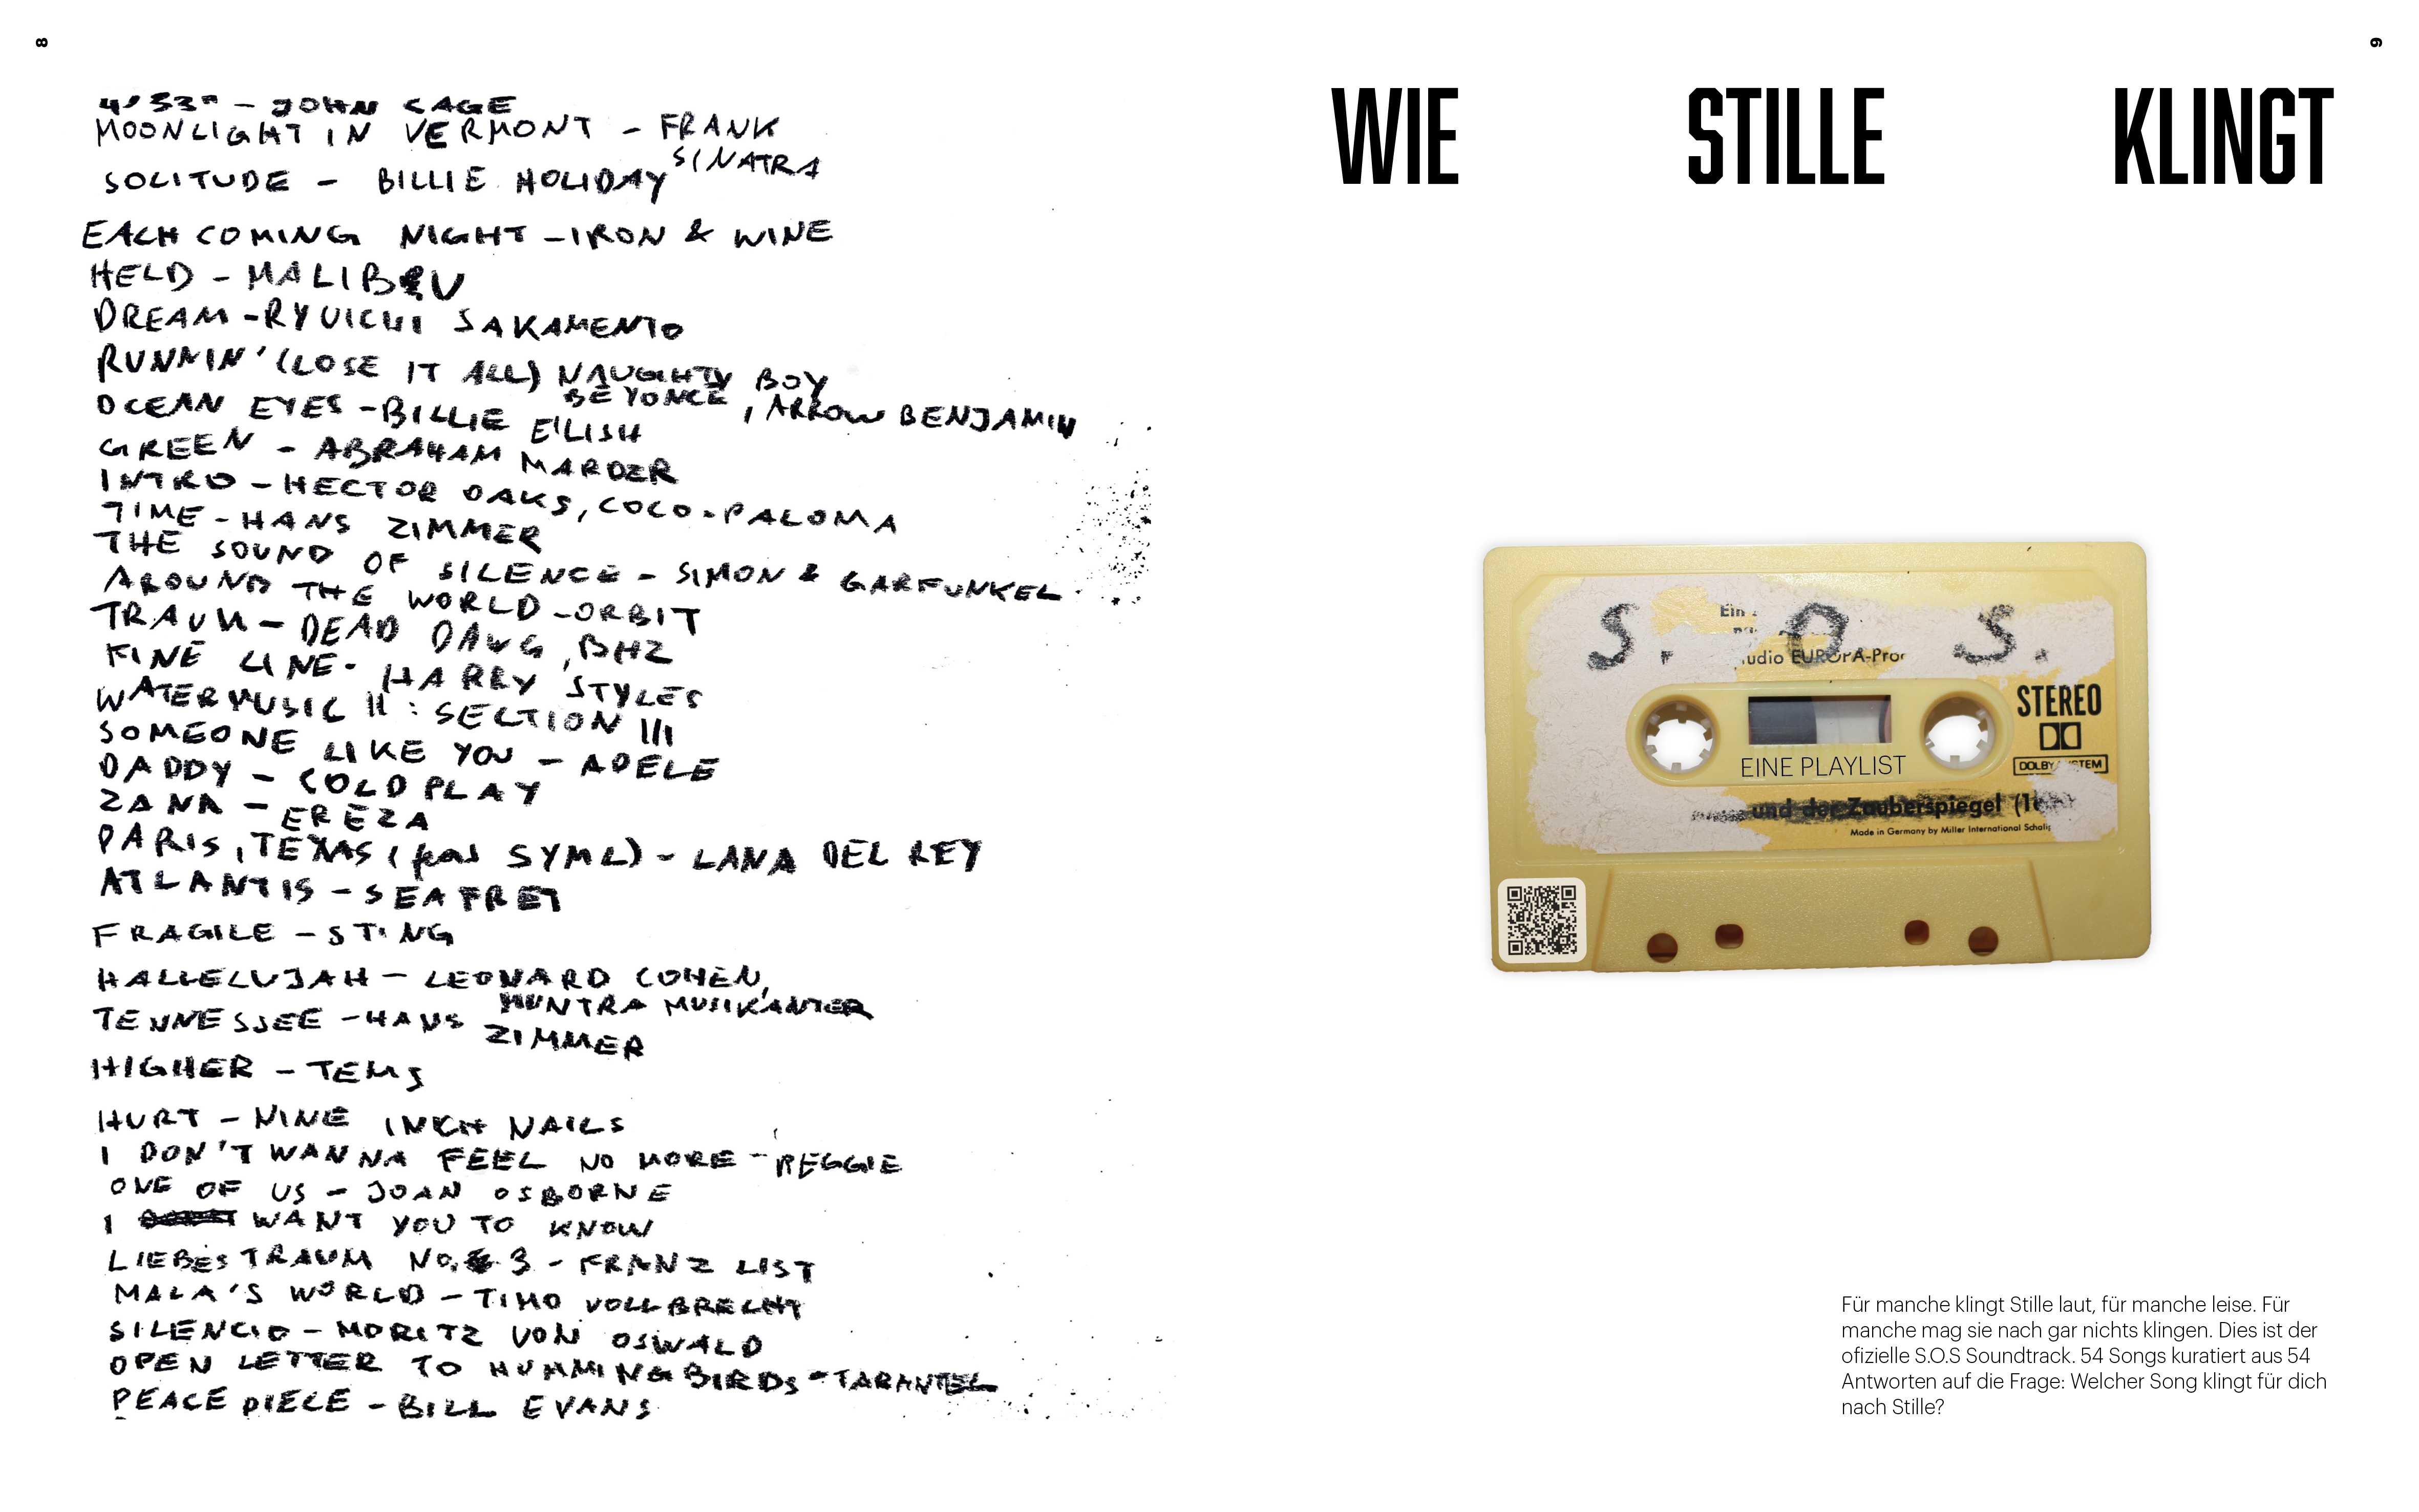 8
4'33" – JOHN CAGE
MOONLIGHT IN VERMONT – FRANK
SINATRA
SOLITUDE – BILLIE HOLIDAY
EACH COMING NIGHT – IRON & WINE
HELD – MALIBU
DREAM – RYUICHI SAKAMENTO
RUNNIN' (LOSE IT ALL) NAUGHTY BOY
BEYONCE, ARROW BENJAMIN
OCEAN EYES – BILLIE EILISH
GREEN – ABRAHAM MARDER
INTRO – HECTOR OAKS, COCO-PALOMA
TIME – HANS ZIMMER
THE SOUND OF SILENCE – SIMON & GARFUNKEL
AROUND THE WORLD – ORBIT
TRAUM – DEAD DAWG, BHZ
FINE LINE - HARRY STYLES
WATERMUSIC II : SECTION III
SOMEONE LIKE YOU – ADELE
DADDY – COLDPLAY
ZANA – EREZA
PARIS, TEXAS (feat SYML) – LANA DEL REY
ATLANTIS – SEAFRET
FRAGILE – STING
HALLELUJAH – LEONARD COHEN,
MUNTRA MUSIKANTER
TENNESSEE – HANS ZIMMER
HIGHER – TEMS
HURT – NINE INCH NAILS
I DON'T WANNA FEEL NO MORE – REGGIE
ONE OF US – JOAN OSBORNE
I WANT YOU TO KNOW
LIEBESTRAUM NO. 3 – FRANZ LIST
MALA'S WORLD – TIMO VOLLBRECHT
SILENCIO – MORITZ VON OSWALD
OPEN LETTER TO HUMMINGBIRDS – TARANTEL
PEACE PIECE – BILL EVANS
9
WIE STILLE KLINGT
S. O. S.
Ein
udio EUROPA-Pro
STEREO
DOLBY SYSTEM
EINE PLAYLIST
und der Zauberspiegel
Made in Germany by Miller International Schallp
Für manche klingt Stille laut, für manche leise. Für
manche mag sie nach gar nichts klingen. Dies ist der
ofizielle S.O.S Soundtrack. 54 Songs kuratiert aus 54
Antworten auf die Frage: Welcher Song klingt für dich
nach Stille?